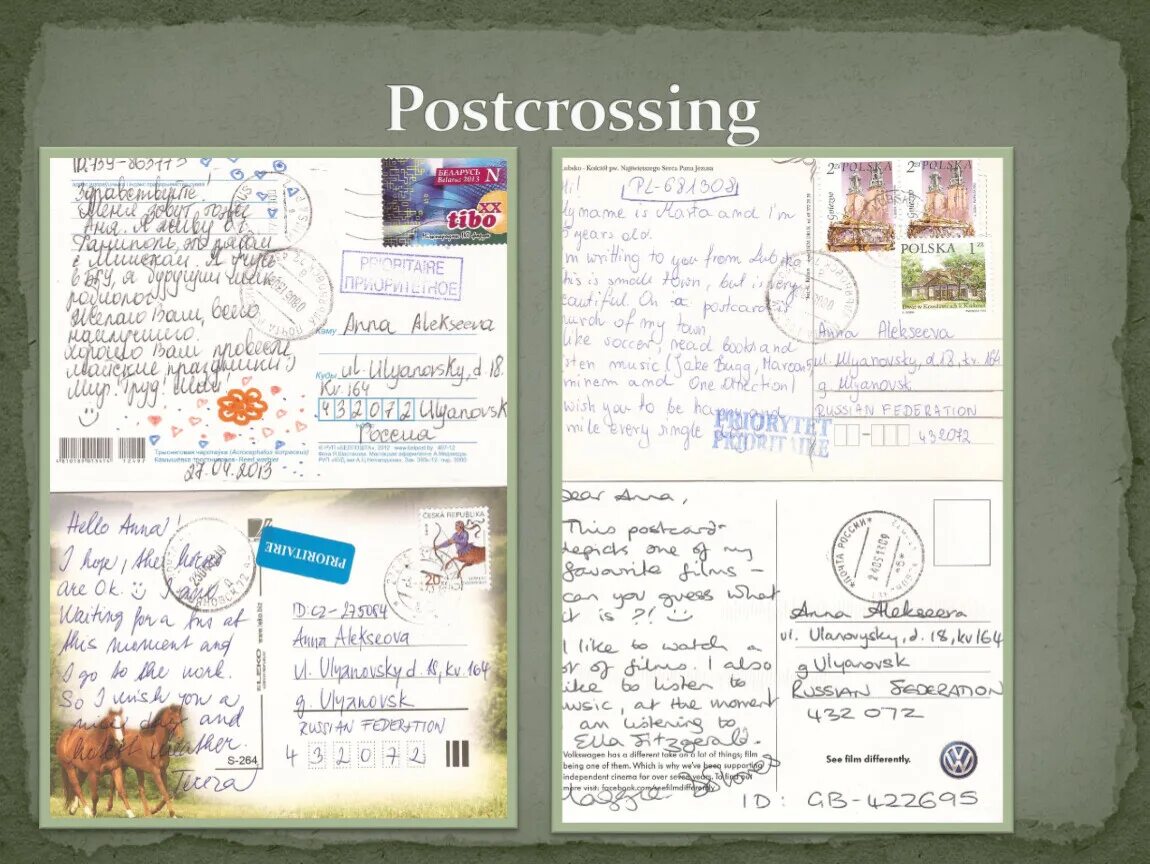 Postcrossing
Здравствуйте!
Меня зовут
Аня. Я живу в г.
Фаниполь, это рядом
с Минском. Я учусь
в БГУ, я будущий
Желаю Вам, всего
наилучшего.
Хорошо Вам провести
майские праздники!
Мир! Труд! Май!
27.04.2013
БЕЛАРУСЬ N
Belarus 2013
XX
tibo
PRIORITAIRE
ПРИОРИТЕТНОЕ
Каму Anna Alekseeva
Куды ul. Ulyanovsky, d. 18.
Kv. 164
432072 Ulyanovsk
Россия
Hi! PL-681308
My name is Marta and I'm
years old.
I'm writting to you from
this is small town, but is very
beautiful. On a postcard is
church of my town.
I like soccer, read books and
listen music (Jake Bugg, Marcus
Eminem and One Direction)
I wish you to be happy and
smile every single day
2zł POLSKA
2zł POLSKA
Gniezno
Gniezno
POLSKA 1zł
Anna Alekseeva
ul. Ulyanovsky, d. 18, kv. 164
g. Ulyanovsk
RUSSIAN FEDERATION
432072
PRIORYTET
PRIORITAIRE
Hello Anna!
I hope, the horses
are Ok. I am
Waiting for a bus at
this moment and
I go to the work.
So I wish you a
nice day and
weather.
Tereza
PRIORITAIRE
ČESKÁ REPUBLIKA
20
S-264
ID: CZ-275064
Anna Alekseova
ul. Ulyanovsky d. 18, kv. 164
g. Ulyanovsk
RUSSIAN FEDERATION
432072
Dear Anna,
This postcard
depicts one of my
favourite films –
can you guess what
it is?!
I like to watch a
lot of films. I also
like to listen to
music, at the moment
I am listening to
Ella Fitzgerald.
Volkswagen has a different take on a lot of things; film
being one of them. Which is why we've been supporting
independent cinema for over seven years. To find out
more visit: facebook.com/seefilmdifferently
ПОЧТА РОССИИ
Anna Alekseeva
ul. Ulanovysky, d. 18, kv 164
g Ulyanovsk
RUSSIAN FEDERATION
432 072
See film differently.
ID: GB-422695